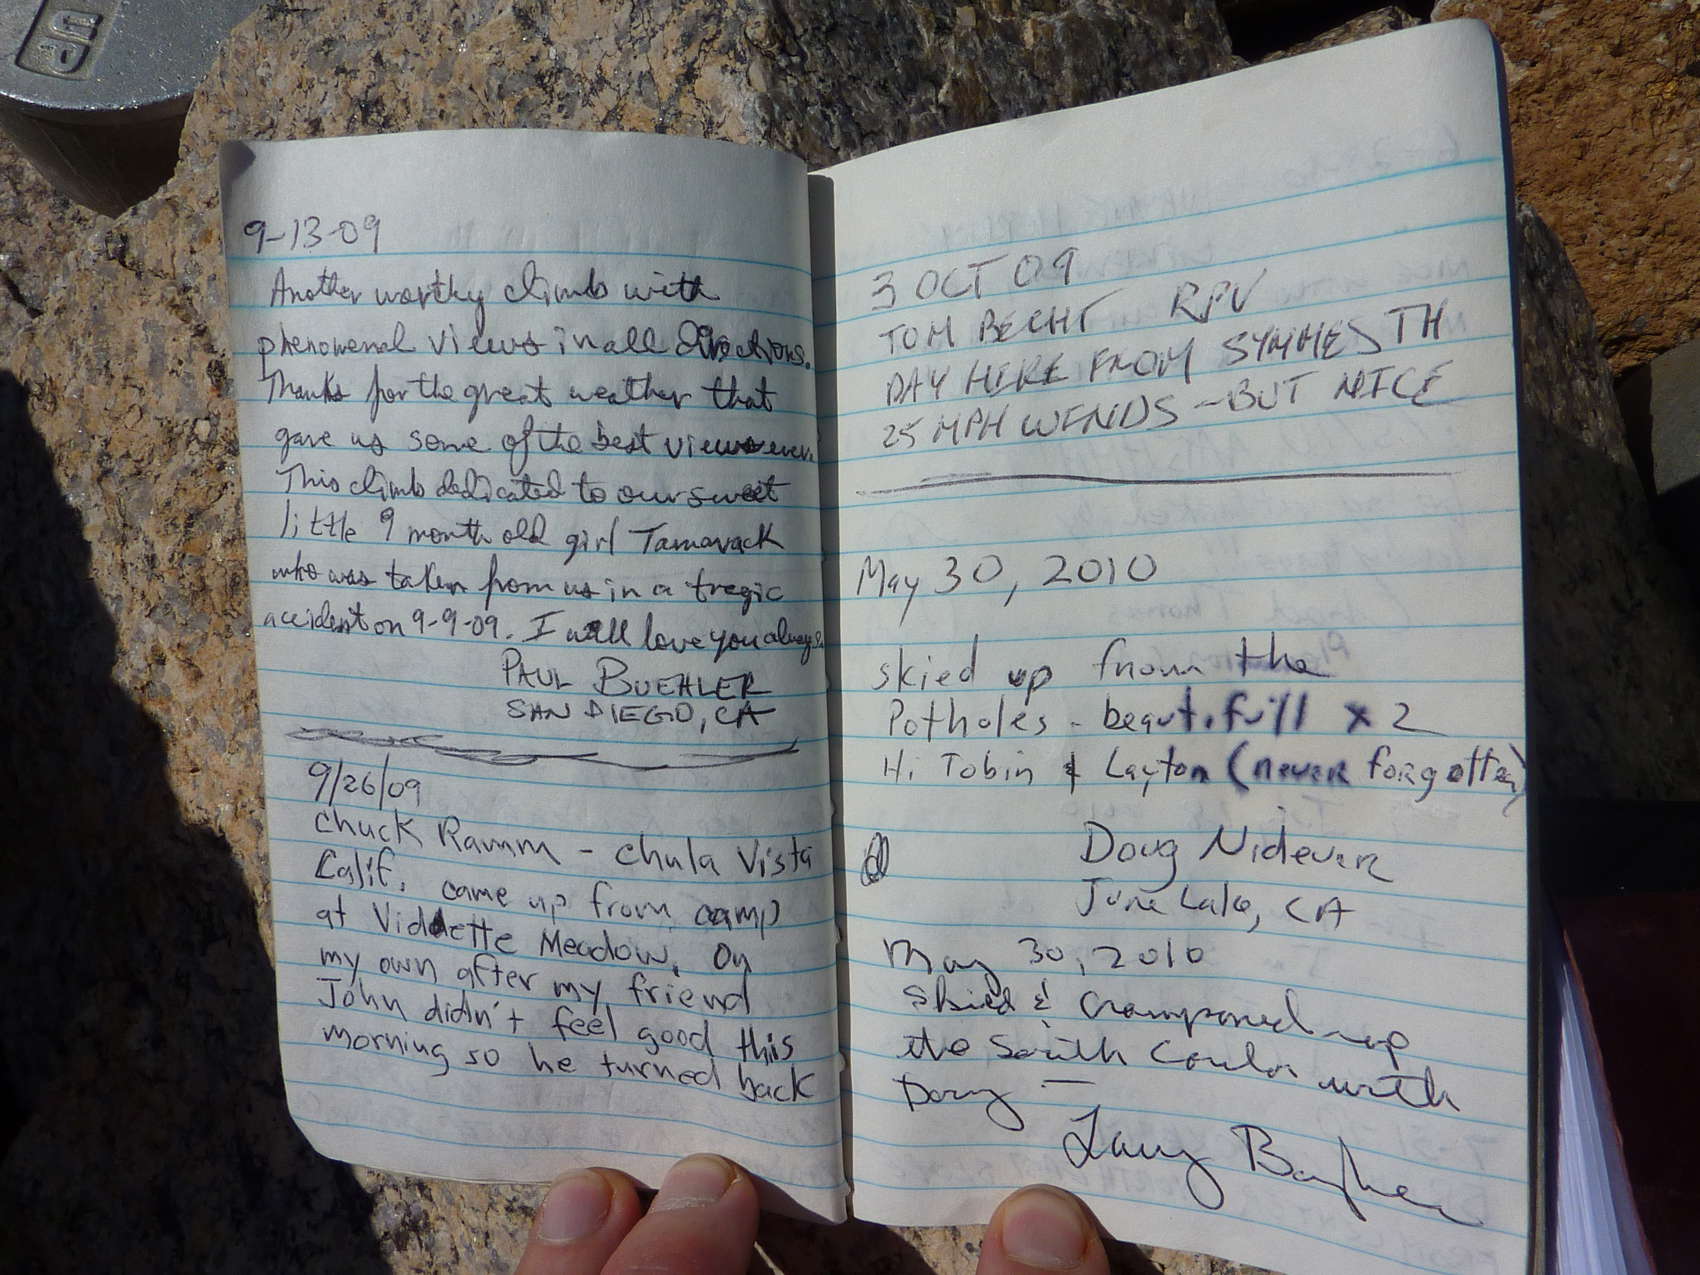 9-13-09
Another worthy climb with
phenomenal views in all directions.
Thanks for the great weather that
gave us some of the best views ever.
This climb dedicated to our sweet
little 9 month old girl Tamarack
who was taken from us in a tragic
accident on 9-9-09. I will love you always.
PAUL BUEHLER
SAN DIEGO, CA
9/26/09
Chuck Ramm - Chula Vista
Calif. came up from camp
at Viddette Meadow. On
my own after my friend
John didn't feel good this
morning so he turned back
3 OCT 09
TOM BECHT RPV
DAY HIKE FROM SYMMES TH
25 MPH WINDS - BUT NICE
May 30, 2010
skied up from the
Potholes - beautifull x 2
Hi Tobin & Layton (never forgotten)
Doug Nidever
June Lake, CA
May 30, 2010
Skied & Cramponed up
the South Couloir with
Doug —
Larry